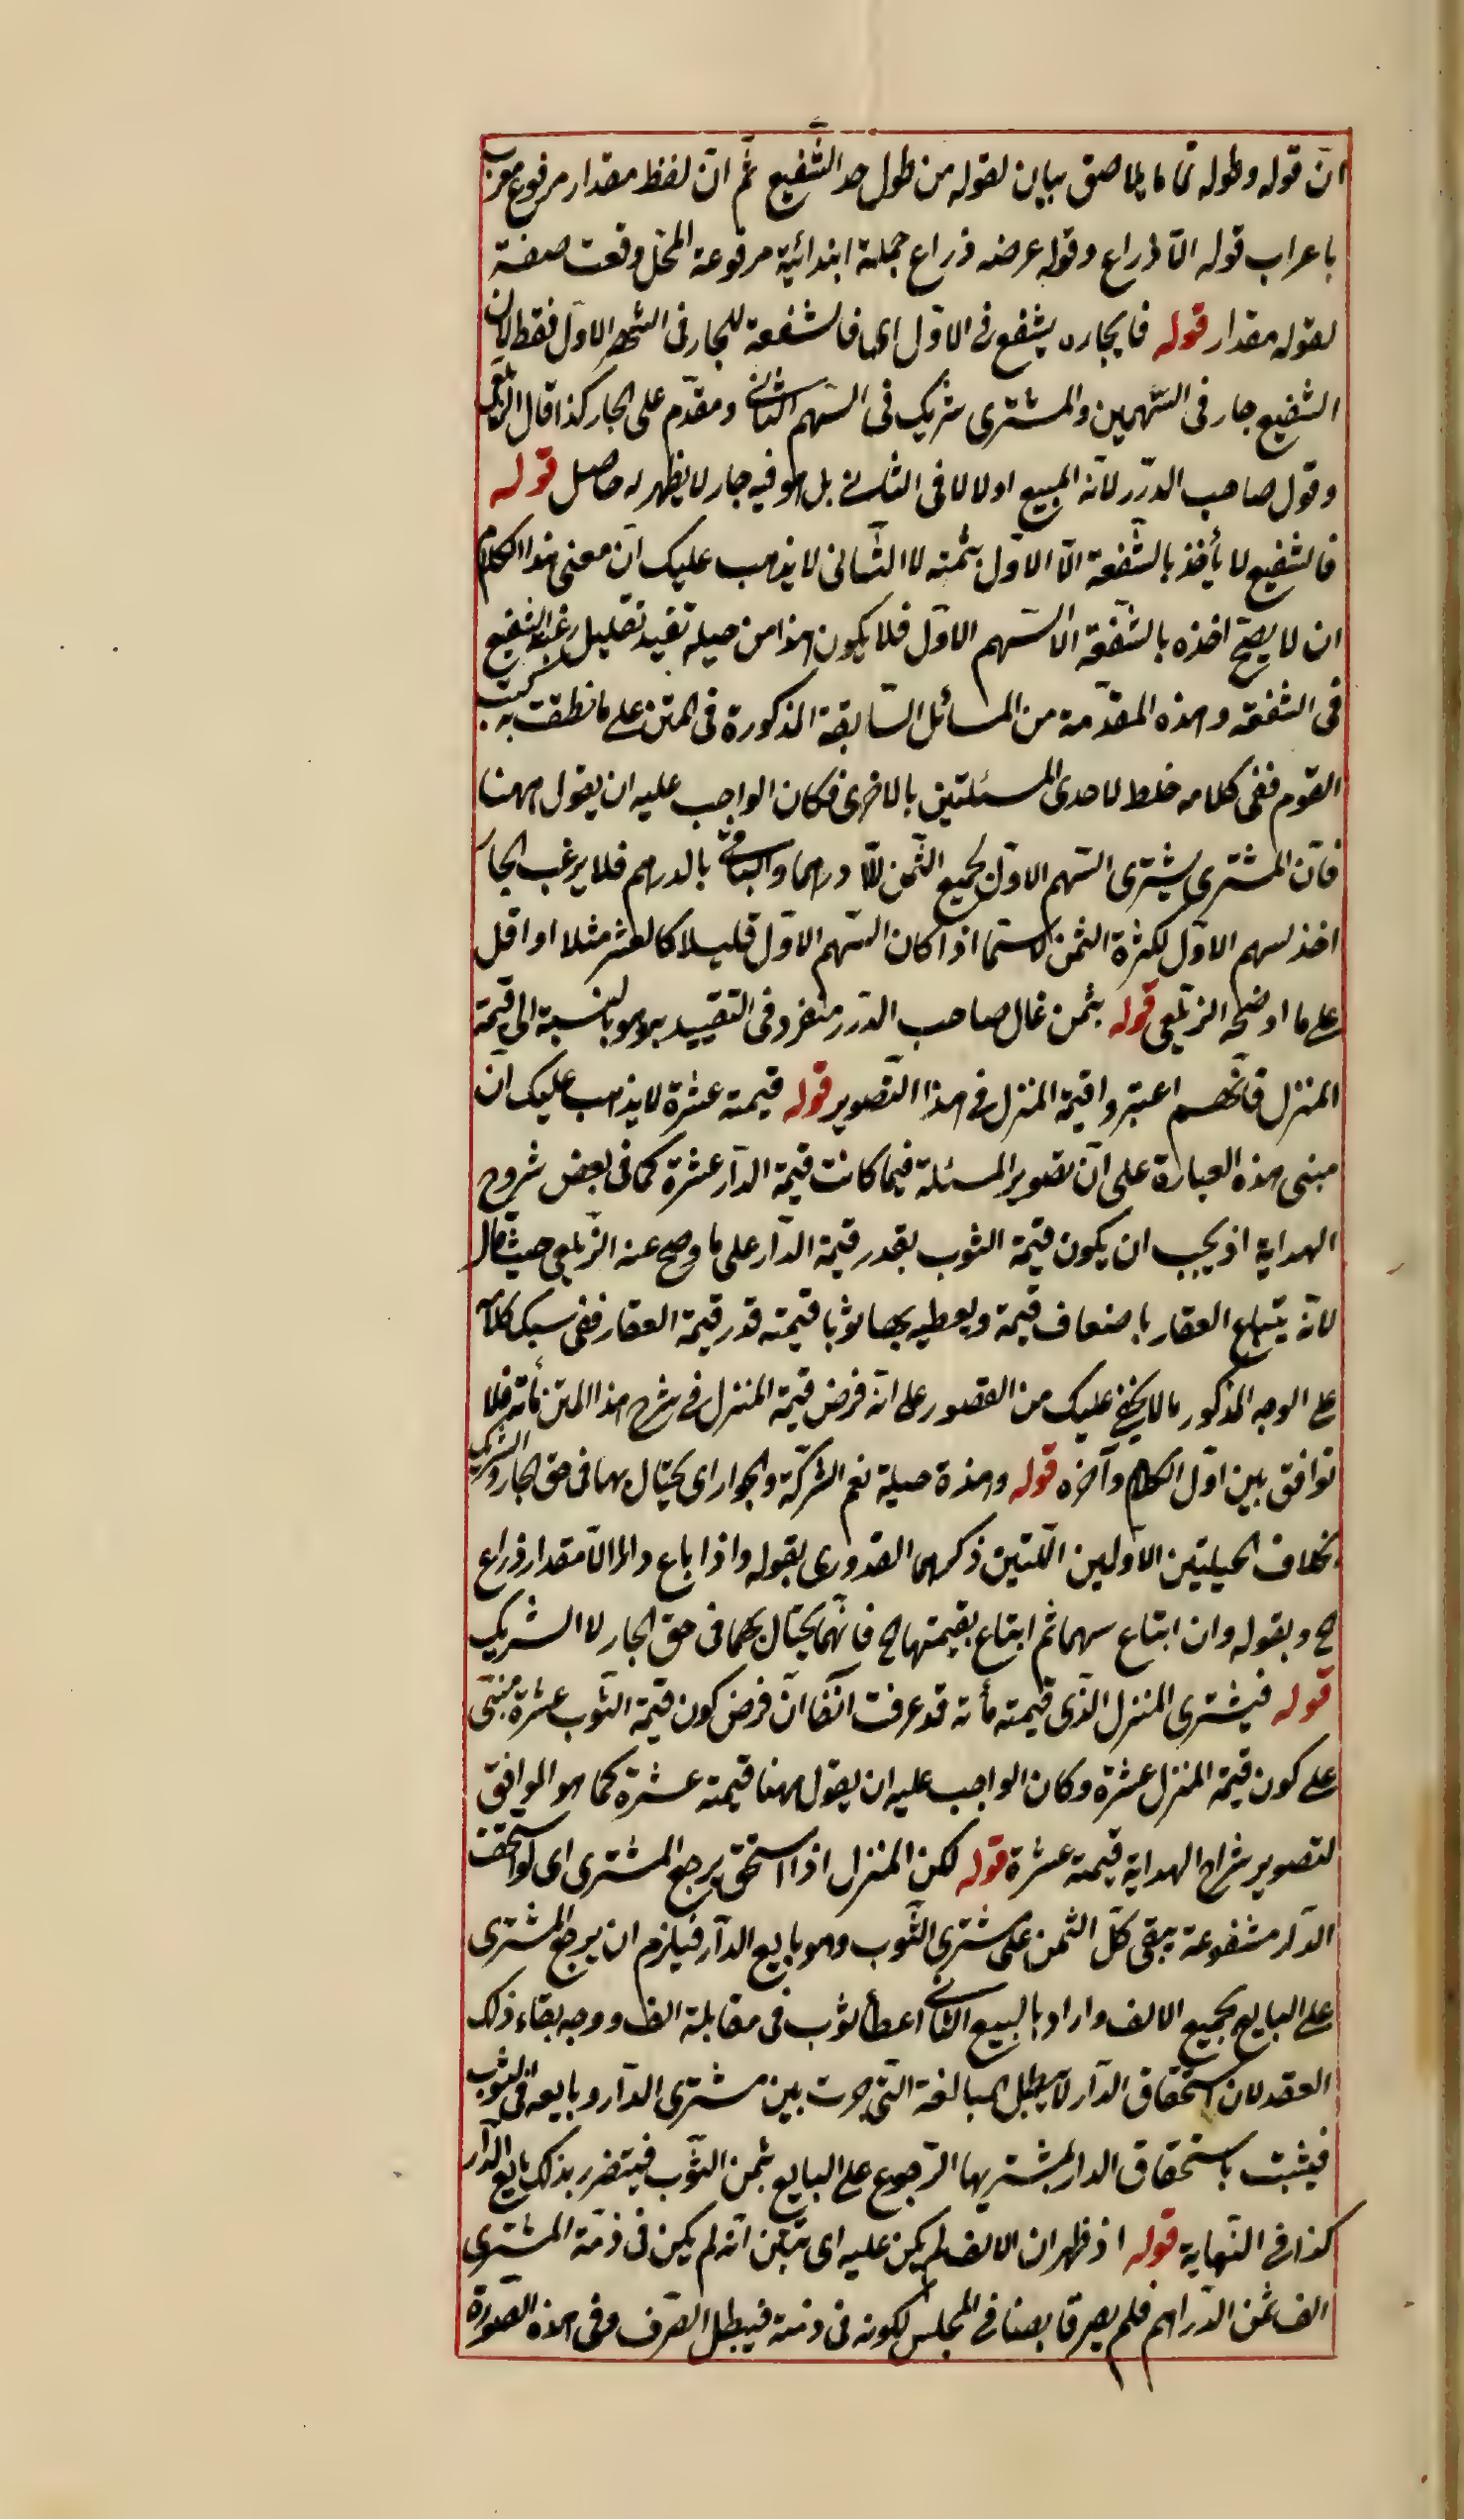 ان قوله وطوله تمام ما يلاصق بيان لقوله من طول حد الشفيع ثم ان لفظ مقدار مرفوع معرب
باعراب قوله الا ذراع وقوله عرضه ذراع جملة ابتدائية مرفوعة المحل وقعت صفة
لقوله مقدار قوله فالجاره يشفع فى الاول اى فالشفعة للجار فى السهم الاول فقط لان
الشفيع جار فى السهمين والمشترى شريك فى السهم الثانى ومقدم على الجار كذا قال الزيلعى
وقول صاحب الدرر لانه المبيع اولا لا فى الثانى بل هو فيه جار لا يظهر له حاصل قوله
فالشفيع لا يأخذ بالشفعة الا الاول بثمنه لا الثانى لا يذهب عليك ان معنى هذا الكلام
ان لا يصح اخذه بالشفعة الا السهم الاول فلا يكون هذا من حيلة تفيد تقليل رغبة الشفيع
فى الشفعة وهذه المقدمة من المسائل السابقة المذكورة فى المتن على ما نطقت به كتب
القوم ففى كلامه خلط لاحدى المسئلتين بالاخرى فكان الواجب عليه ان يقول ههنا
فان المشترى يشترى السهم الاول بجميع الثمن الا درهما والباقى بالدرهم فلا يرغب الجار
اخذ لسهم الاول لكثرة الثمن لا سيما اذا كان السهم الاول قليلا كالعشر مثلا او اقل
على ما اوضحه الزيلعى قوله بثمن غال صاحب الدرر منفرد فى التقييد به وهو بالنسبة الى قيمة
المنزل فانهم اعتبروا قيمة المنزل فى هذا التصوير قوله قيمته عشرة لا يذهب عليك ان
مبنى هذه العبارة على ان تصوير المسئلة فيما كانت قيمة الدار عشرة كما فى بعض شروح
الهداية اذ يجب ان يكون قيمة الثوب بقدر قيمة الدار على ما وضح عنه الزيلعى حيث قال
لانه يبتاع العقار باضعاف قيمة ويعطيه بها ثوبا قيمته قدر قيمة العقار ففى سبك كلامه
على الوجه المذكور ما لا يخفى عليك من القصور على انه فرض قيمة المنزل فى شرح هذا المتن مأته فلا
توافق بين اول الكلام وآخره قوله وهذة حيلة تعم الشركة والجوار اى يحتال بها فى حق الجار والشريك
بخلاف الحيلتين الاوليين اللتين ذكرهما القدورى بقوله واذا باع دارا الا مقدار ذراع
الخ وبقوله وان ابتاع سهما ثم ابتاع بقيمتها الخ فانهما يحتال بهما فى حق الجار لا الشريك
قوله فيشترى المنزل الذى قيمته مأته قد عرفت آنفا ان فرض كون قيمة الثوب عشرة مبنى
على كون قيمة المنزل عشرة وكان الواجب عليه ان يقول ههنا قيمته عشرة كما هو الموافق
لتصوير شراح الهداية قيمته عشرة قوله لكن المنزل اذا استحق يرجع المشترى اى لو استحق
الدار مشفوعة يبقى كل الثمن على مشترى الثوب وهو بايع الدار فيلزم ان يرجع المشترى
على البايع بجميع الالف واراد بالبيع الثانى اعطأ ثوب فى مقابلة الف ووجه بقاء ذلك
العقد لان استحقاق الدار لا يبطل المبالغة التى جرت بين مشترى الدار وبايعه فى الثوب
فيثبت باستحقاق الدار لمشتريها الرجوع على البايع بثمن الثوب فيتضرر بذلك بايع الدار
كذا فى النهاية قوله اذ ظهر ان الالف لم يكن عليه اى تبين انه لم يكن فى ذمة المشترى
الف ثمن الدراهم فلم يصر قابضا فى المجلس لكونه فى ذمته فيبطل الصرف وفى هذه الصورة